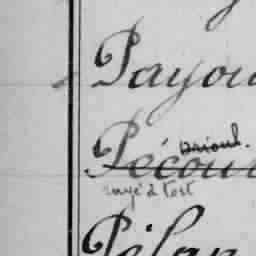 Payou
Drioul.
Pécou
rayé à tort
Pélan